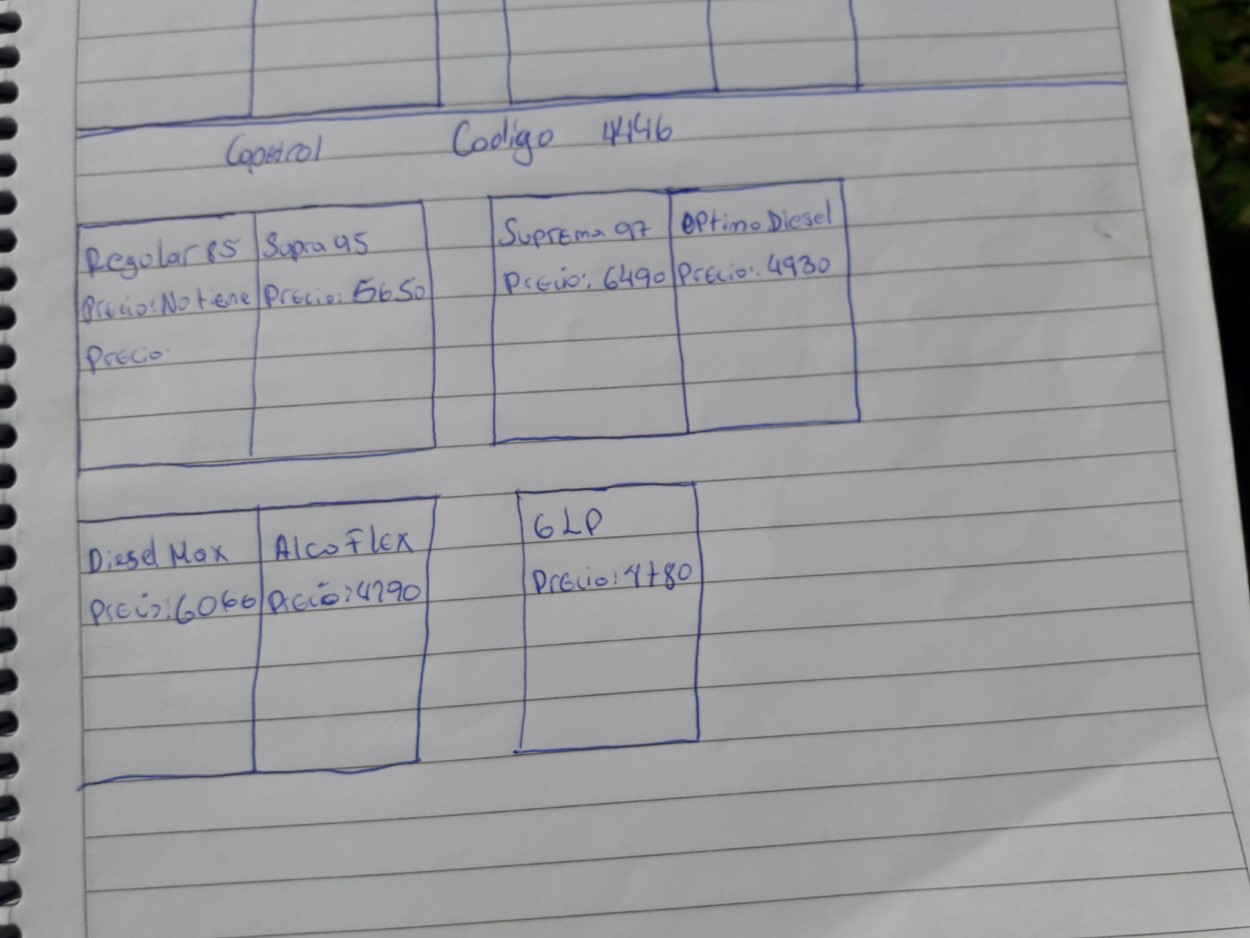 Copetrol Codigo 4446
Regular 85
Precio: No tiene
Precio
Supra 95
Precio: 5650
Suprema 97
Precio: 6490
Optimo Diesel
Precio: 4930
Diesel Max
Precio: 6060
Alco Flex
Precio: 4290
GLP
Precio: 4780